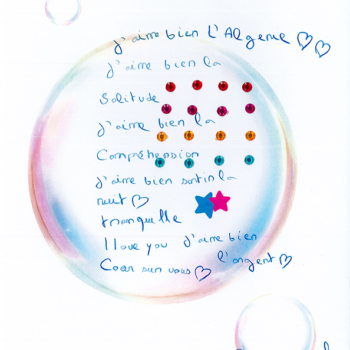 j'aime bien L'Algerie ♡♡
j'aime bien la
Solitude
j'aime bien la
Compréhension
j'aime bien sortir la
nuit ♡
tranquille
I love you j'aime bien
Coeur sur vous ♡ l'argent ♡